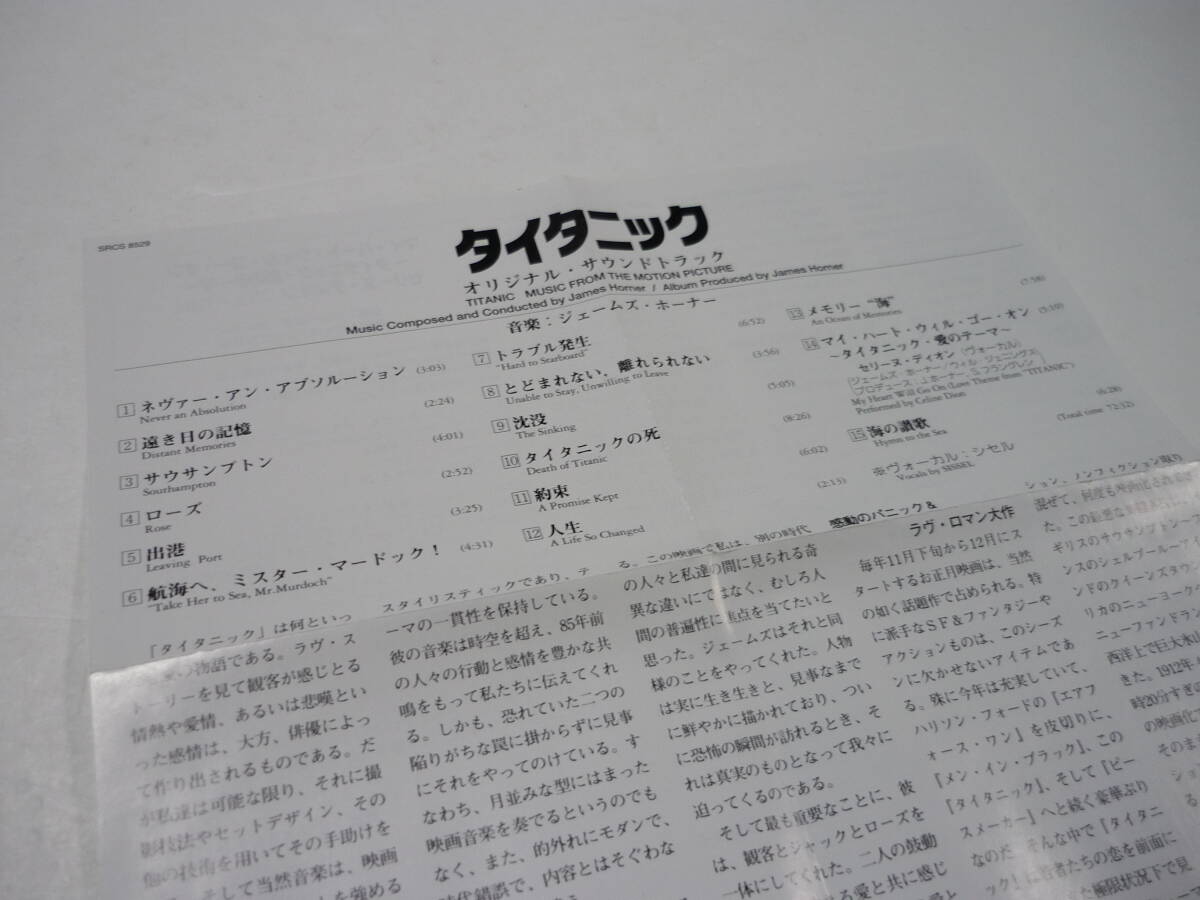 SRCS 8529
タイタニック
オリジナル・サウンドトラック
TITANIC MUSIC FROM THE MOTION PICTURE
Music Composed and Conducted by James Horner / Album Produced by James Horner
音楽：ジェームズ・ホーナー
1 ネヴァー・アン・アブソルーション (3:03)
Never an Absolution
2 遠き日の記憶 (2:24)
Distant Memories
3 サウサンプトン (4:01)
Southampton
4 ローズ (2:52)
Rose
5 出港 (3:25)
Leaving Port
6 航海へ、ミスター・マードック！ (4:31)
"Take Her to Sea, Mr.Murdoch"
7 トラブル発生 (6:52)
"Hard to Starboard"
8 とどまれない，離れられない (3:56)
Unable to Stay, Unwilling to Leave
9 沈没 (5:05)
The Sinking
10 タイタニックの死 (8:26)
Death of Titanic
11 約束 (6:02)
A Promise Kept
12 人生 (2:13)
A Life So Changed
13 メモリー“海” (7:58)
An Ocean of Memories
14 マイ・ハート・ウィル・ゴー・オン (5:10)
〜タイタニック・愛のテーマ〜
セリーヌ・ディオン（ヴォーカル）
［ジェームズ ホーナー／ウィル ジェニングス
プロデュース：J.ホーナー，S.フラングレン］
My Heart Will Go On (Love Theme from "TITANIC")
Performed by Celine Dion
15 海の讃歌 (6:28)
Hymn to the Sea
(Total time 72:32)
※ヴォーカル：シセル
Vocals by SISSEL
『タイタニック』は何といっ
物語である。ラヴ・ス
トーリーを見て観客が感じとる
情熱や愛情、あるいは悲嘆とい
った感情は、大方、俳優によっ
て作り出されるものである。だ
が私達は可能な限り、それに撮
影技法やセットデザイン、その
他の技術を用いてその手助けを
そして当然音楽は、映画
を強める
スタイリスティックであり、テ
ーマの一貫性を保持している。
彼の音楽は時空を超え、85年前
の人々の行動と感情を豊かな共
鳴をもって私たちに伝えてくれ
る。しかも、恐れていた二つの
陥りがちな罠に掛からずに見事
にそれをやってのけている。す
なわち、月並みな型にはまった
映画音楽を奏でるというのでも
なく、また、的外れにモダンで、
時代錯誤で、内容とはそぐわな
る。この映画で私は、別の時代
の人々と私達の間に見られる奇
異な違いにではなく、むしろ人
間の普遍性に焦点を当てたいと
思った。ジェームズはそれと同
様のことをやってくれた。人物
は実に生き生きと、見事なまで
に鮮やかに描かれており、つい
に恐怖の瞬間が訪れるとき、そ
れは真実のものとなって我々に
迫ってくるのである。
そして最も重要なことに、彼
は、観客とジャックとローズを
一体にしてくれた。二人の鼓動
る愛と共に感じ
感動のパニック＆
ラヴ・ロマン大作
毎年11月下旬から12月にス
タートするお正月映画は、当然
の如く話題作で占められる。特
に派手なＳＦ＆ファンタジーや
アクションものは、このシーズ
ンに欠かせないアイテムであ
る。殊に今年は充実していて、
ハリソン・フォードの『エアフ
ォース・ワン』を皮切りに、
『メン・イン・ブラック』、この
『タイタニック』、そして『ピー
スメーカー』へと続く豪華ぶり
なのだ。そんな中で『タイタニ
ック』は若者たちの恋を前面に
極限状況下で見
ション、ノンフィクション取り
混ぜて、何度も映画化され
た。この
ギリスのサウサンプトン〜
ンスのシェルブール〜アイ
ンドのクイーンズタウン
リカのニューヨーク
ニューファンドラン
西洋上で巨大氷
きた。1912年
時20分すぎの
の映画化
そのま